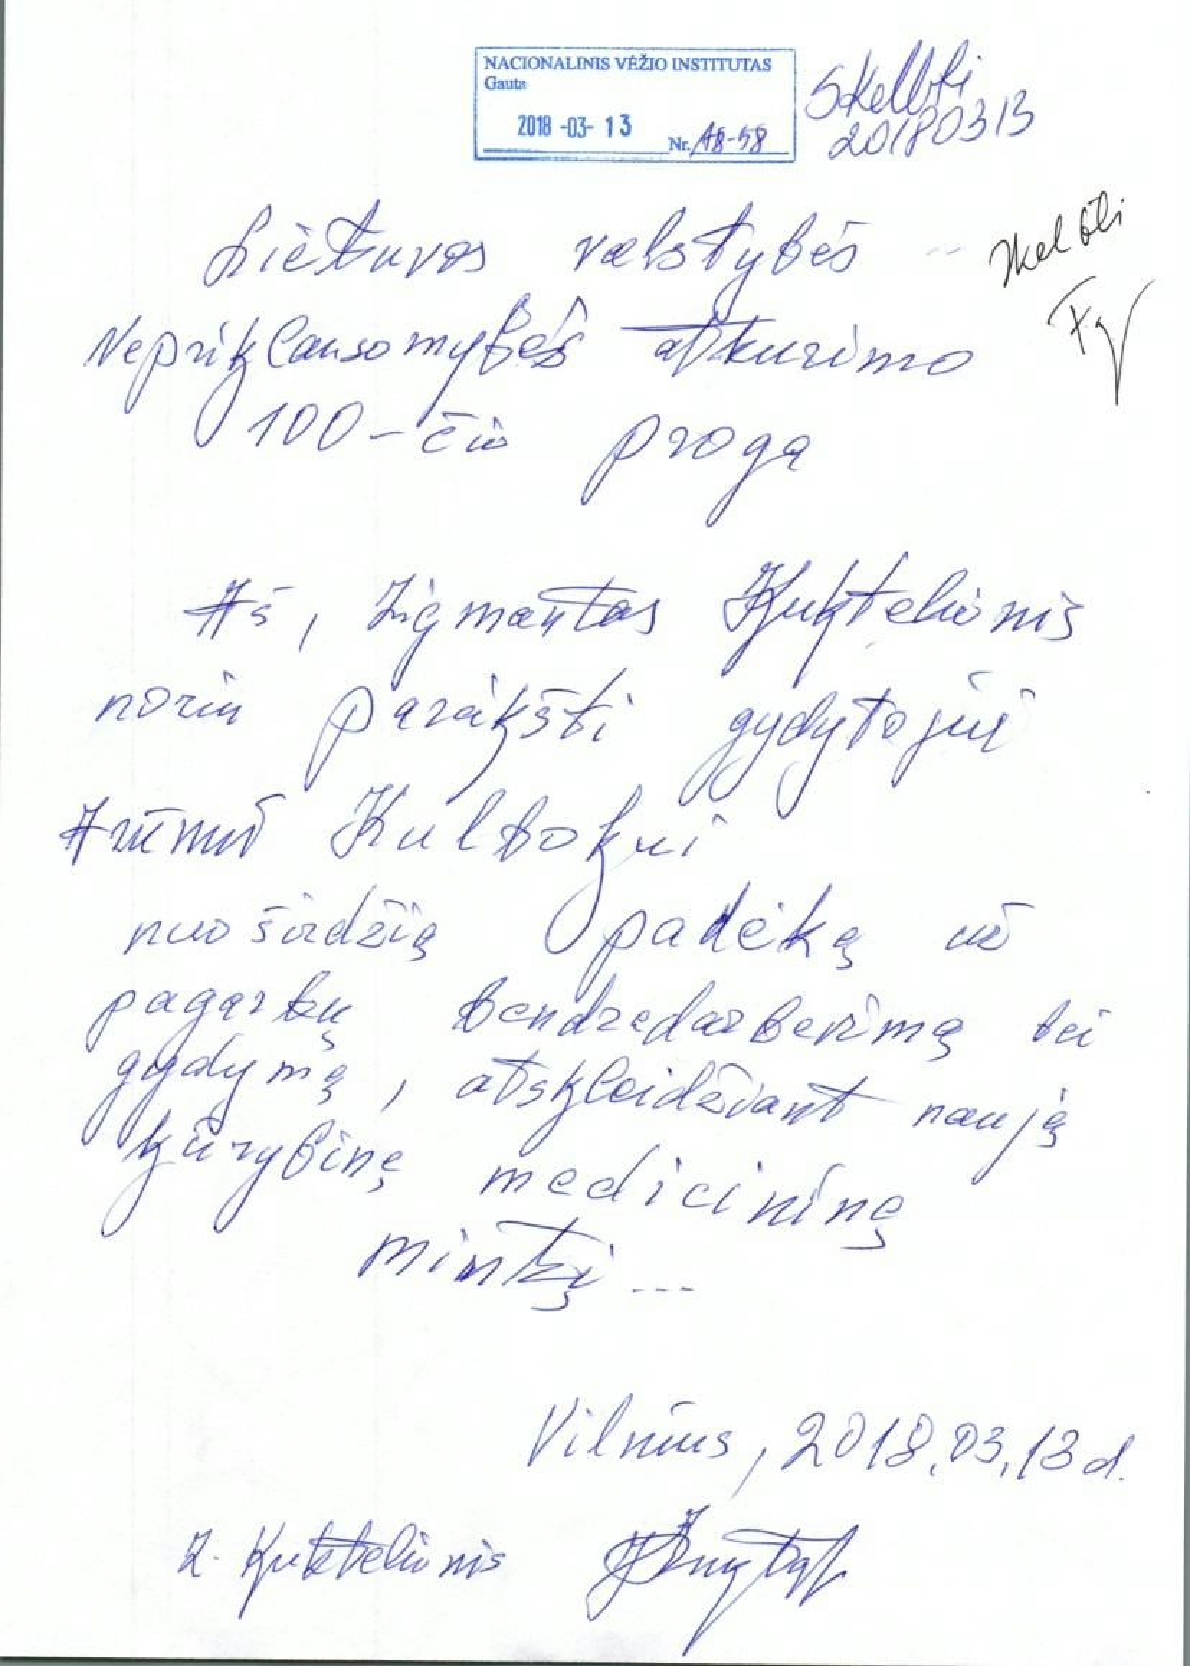 NACIONALINIS VĖŽIO INSTITUTAS
Gauta
2018 -03- 13
Nr. A8-58
Skelbti
20180313
Skelbti
Lietuvos valstybės
Nepriklausomybės atkurimo
100-čio proga
Aš, Zigmantas Kuktelionis
noriu pareikšti gydytojui
Arūnui Kulbokui
nuoširdžią padėką už
pagarbų bendradarbavimą bei
gydymą, atskleidžiant naują
kūrybinę medicininę
mintį...
Vilnius, 2018.03.13 d.
Z. Kuktelionis